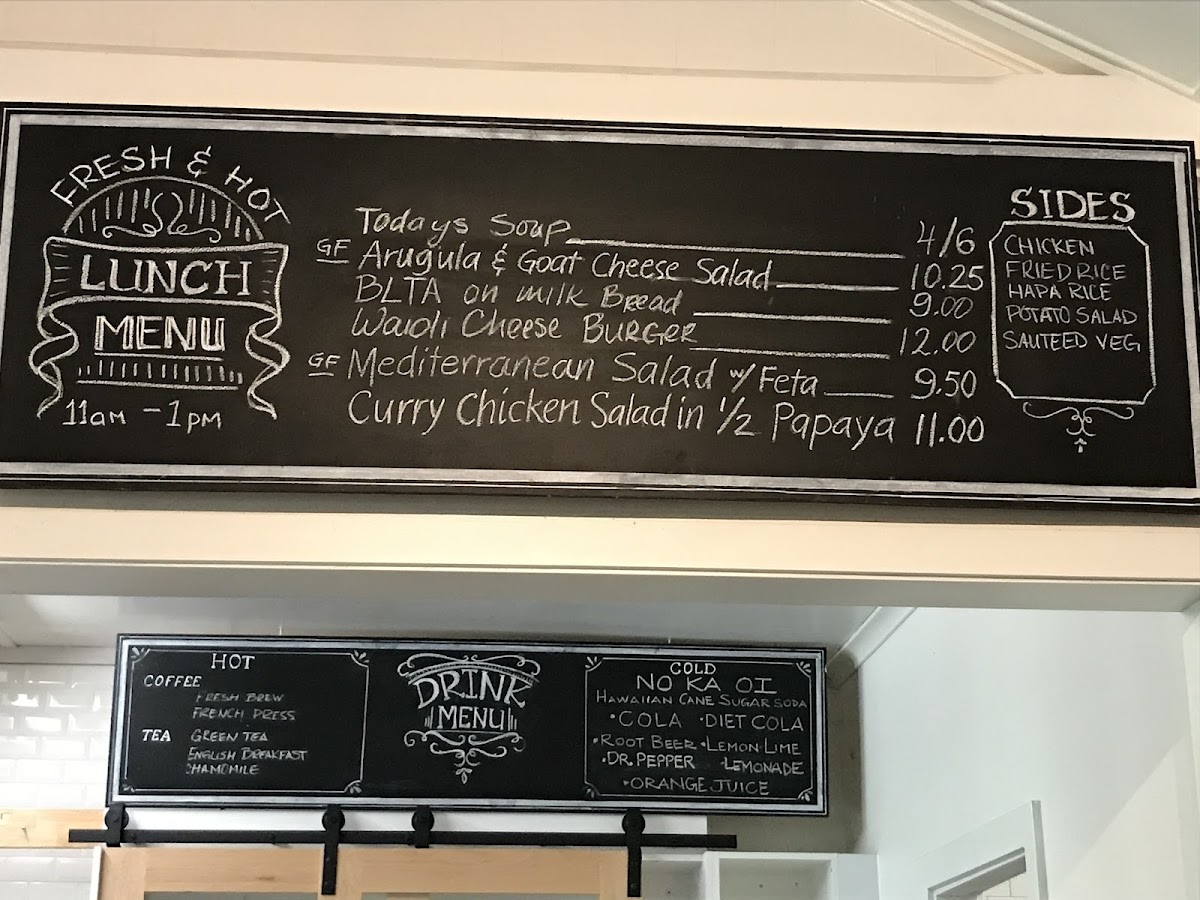 FRESH & HOT
LUNCH
MENU
11AM - 1PM
Todays Soup 4/6
GF Arugula & Goat Cheese Salad 10.25
BLTA on milk Bread 9.00
Waioli Cheese BURGER 12.00
GF Mediterranean Salad w/ Feta 9.50
Curry Chicken Salad in 1/2 Papaya 11.00
SIDES
CHICKEN
FRIED RICE
HAPA RICE
POTATO SALAD
SAUTEED VEG
HOT
COFFEE
FRESH BREW
FRENCH PRESS
TEA GREEN TEA
ENGLISH BREAKFAST
CHAMOMILE
DRINK
MENU
COLD
NO KA OI
HAWAIIAN CANE SUGAR SODA
•COLA •DIET COLA
•ROOT BEER •LEMON LIME
•DR. PEPPER •LEMONADE
•ORANGE JUICE